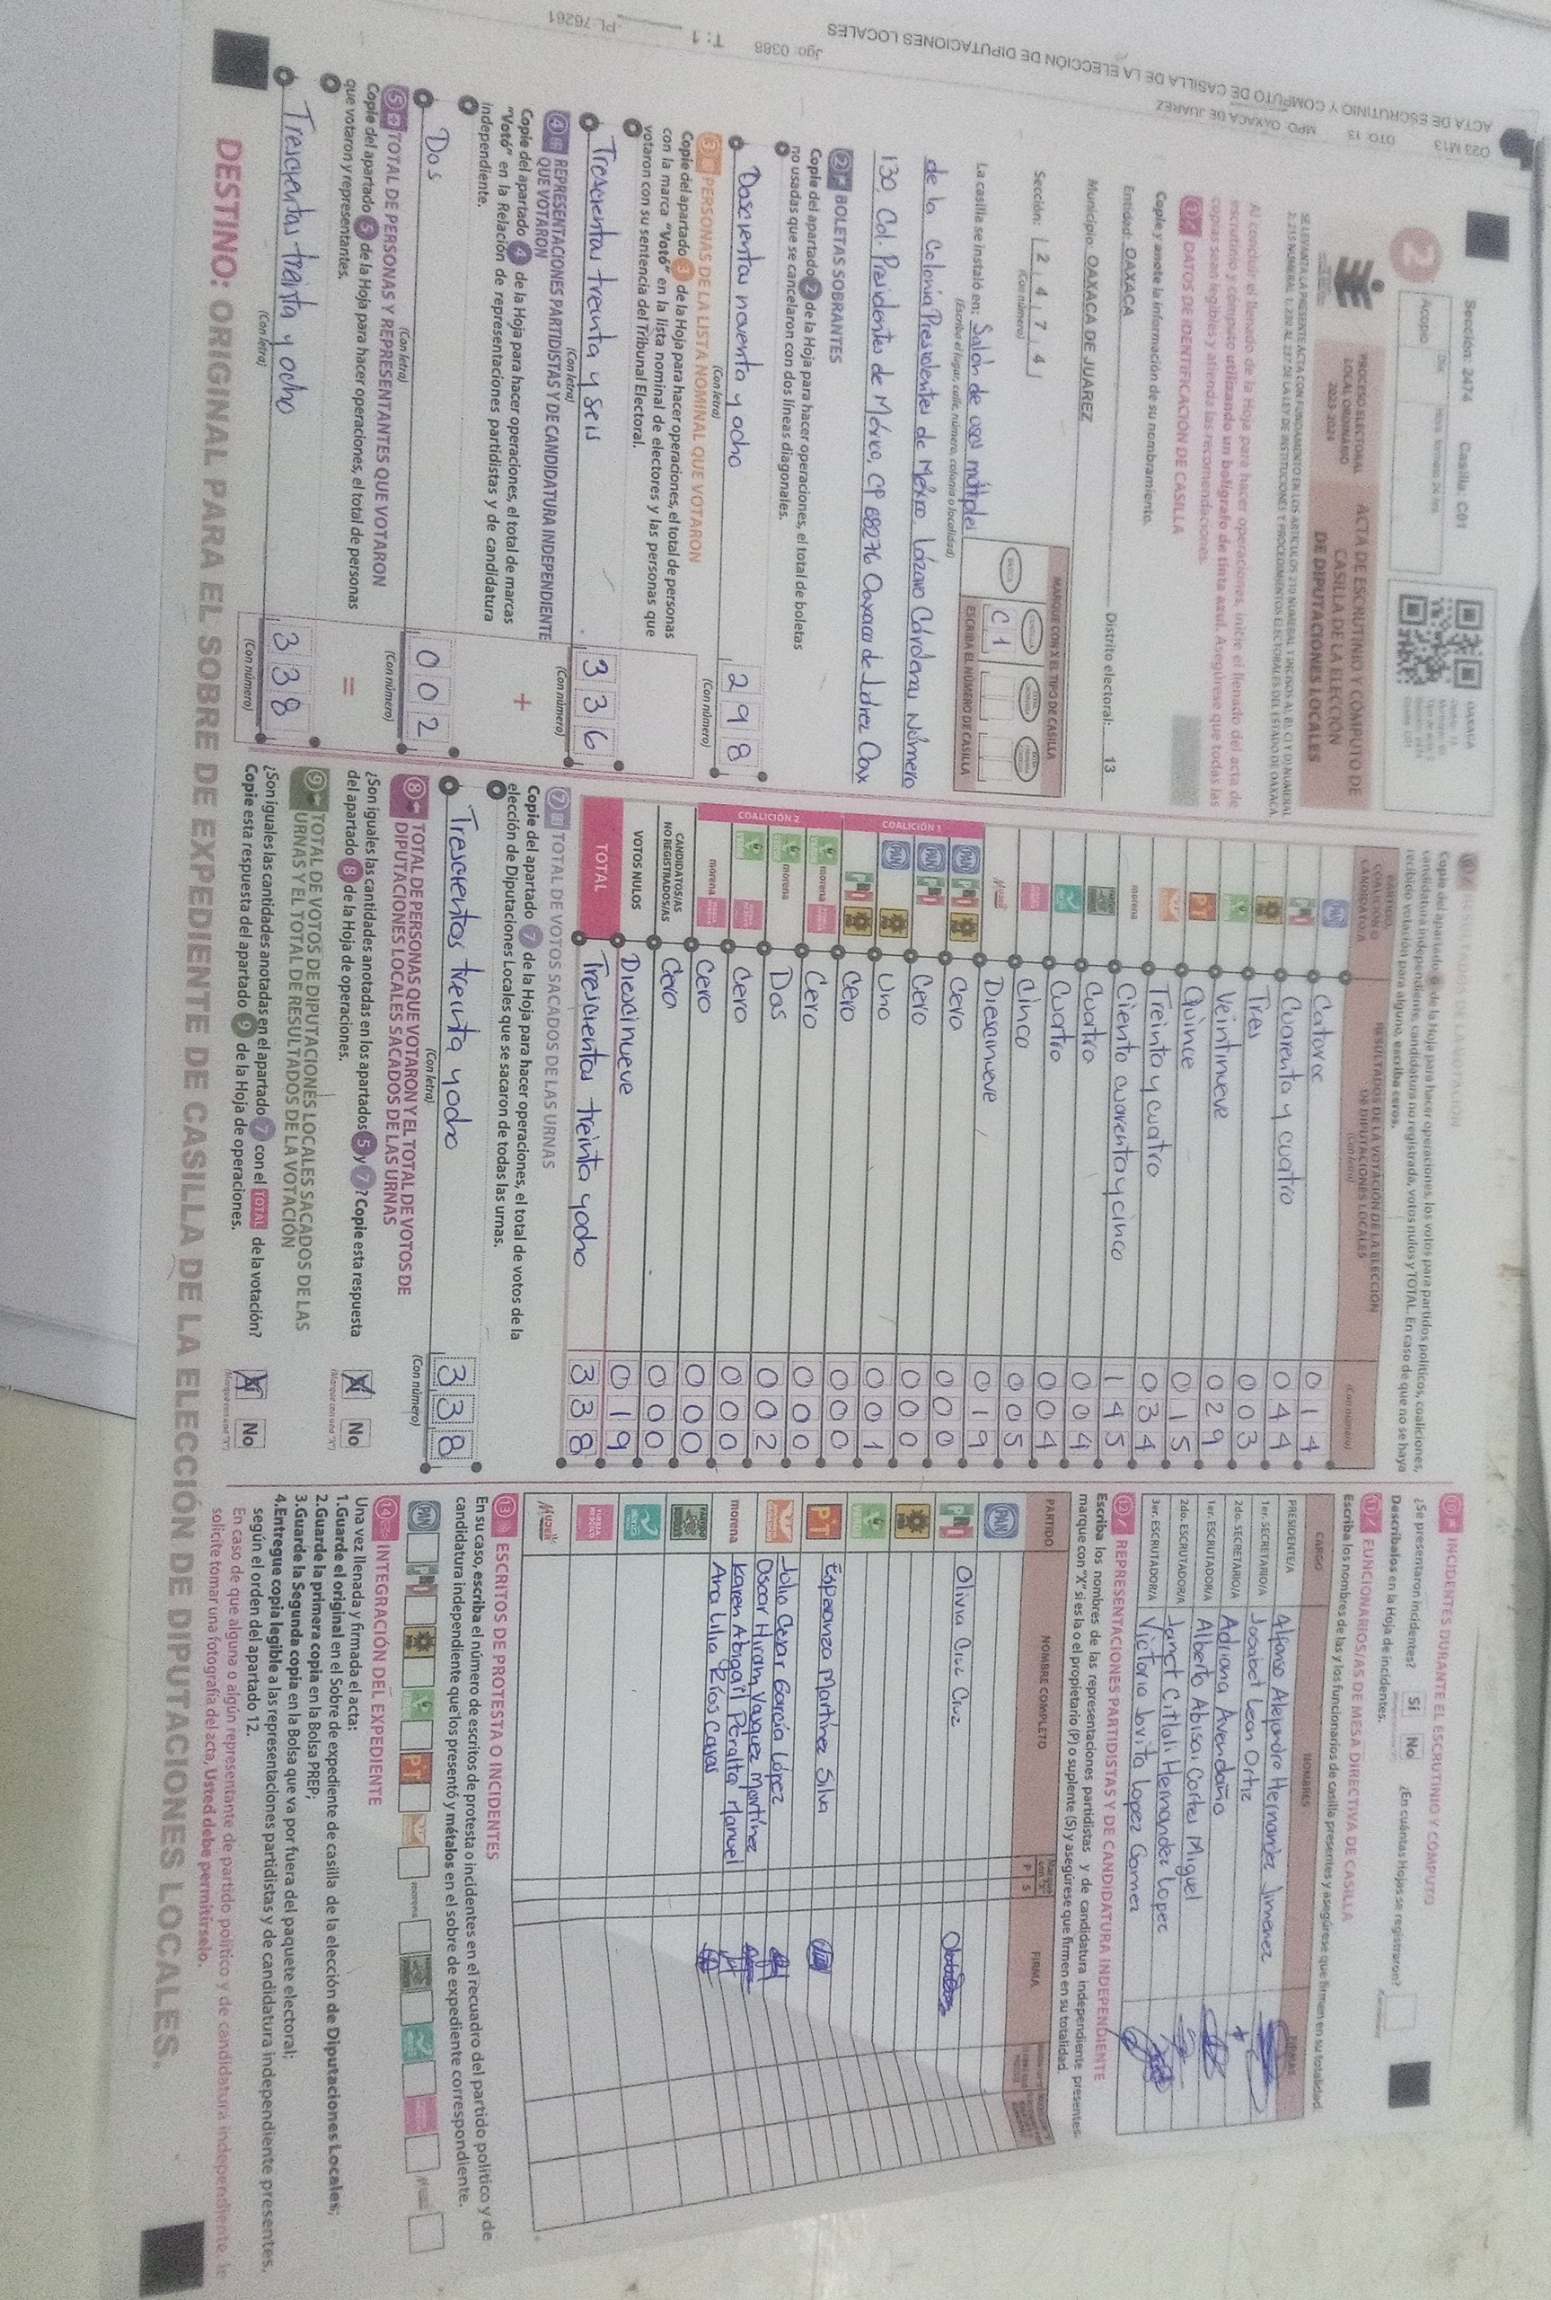 023 M13 DTO: 13 MPO: OAXACA DE JUAREZ Jgo: 0388 T: 1 PL-76261
ACTA DE ESCRUTINIO Y CÓMPUTO DE CASILLA DE LA ELECCIÓN DE DIPUTACIONES LOCALES
Sección: 2474 Casilla: C01
OAXACA
2
Acopio
PROCESO ELECTORAL
LOCAL ORDINARIO
2023-2024
ACTA DE ESCRUTINIO Y CÓMPUTO DE
CASILLA DE LA ELECCIÓN
DE DIPUTACIONES LOCALES
Al concluir el llenado de la Hoja para hacer operaciones, inicie el llenado del acta de
escrutinio y cómputo utilizando un bolígrafo de tinta azul. Asegúrese que todas las
copias sean legibles y atienda las recomendaciones.
1 DATOS DE IDENTIFICACIÓN DE CASILLA
Copie y anote la información de su nombramiento.
Entidad: OAXACA Distrito electoral: 13
Municipio: OAXACA DE JUAREZ
Sección: 2 4 7 4
(Con número)
MARQUE CON X EL TIPO DE CASILLA
C 1
ESCRIBA EL NÚMERO DE CASILLA
La casilla se instaló en: Salón de usos múltiples
(Escriba el lugar, calle, número, colonia o localidad)
de la Colonia Presidentes de México Lázaro Cárdenas Número
130, Col. Presidentes de México, CP 68276 Oaxaca de Juárez Oax
2 BOLETAS SOBRANTES
Copie del apartado 2 de la Hoja para hacer operaciones, el total de boletas
no usadas que se cancelaron con dos líneas diagonales.
Doscientos noventa y ocho 2 9 8
(Con letra) (Con número)
3 PERSONAS DE LA LISTA NOMINAL QUE VOTARON
Copie del apartado 3 de la Hoja para hacer operaciones, el total de personas
con la marca "Votó" en la lista nominal de electores y las personas que
votaron con su sentencia del Tribunal Electoral.
Trescientos treinta y seis 3 3 6
(Con letra) (Con número)
4 REPRESENTACIONES PARTIDISTAS Y DE CANDIDATURA INDEPENDIENTE
QUE VOTARON
Copie del apartado 4 de la Hoja para hacer operaciones, el total de marcas
"Votó" en la Relación de representaciones partidistas y de candidatura
independiente.
+
Dos 0 0 2
(Con letra) (Con número)
5 TOTAL DE PERSONAS Y REPRESENTANTES QUE VOTARON
Copie del apartado 5 de la Hoja para hacer operaciones, el total de personas
que votaron y representantes.
=
Trescientos treinta y ocho 3 3 8
(Con letra) (Con número)
Copie del apartado 6 de la Hoja para hacer operaciones, los votos para partidos políticos, coaliciones,
candidatura independiente, candidatura no registrada, votos nulos y TOTAL. En caso de que no se haya
recibido votación para alguno, escriba ceros.
PARTIDO, COALICIÓN O CANDIDATO/A
RESULTADOS DE LA VOTACIÓN DE LA ELECCIÓN
DE DIPUTACIONES LOCALES
(Con letra) (Con número)
PAN Catorce 0 1 4
PRI Cuarenta y cuatro 0 4 4
PRD Tres 0 0 3
VERDE Veintinueve 0 2 9
PT Quince 0 1 5
Treinta y cuatro 0 3 4
morena Ciento cuarenta y cinco 1 4 5
Cuatro 0 0 4
Cuatro 0 0 4
Cinco 0 0 5
Mujer Diecinueve 0 1 9
COALICIÓN 1
PAN PRI PRD Cero 0 0 0
PAN PRI Cero 0 0 0
PAN PRD Uno 0 0 1
PRI PRD Cero 0 0 0
COALICIÓN 2
VERDE morena Cero 0 0 0
VERDE morena Dos 0 0 2
VERDE Cero 0 0 0
morena Cero 0 0 0
CANDIDATOS/AS
NO REGISTRADOS/AS Cero 0 0 0
VOTOS NULOS Diecinueve 0 1 9
TOTAL Trescientos treinta y ocho 3 3 8
7 TOTAL DE VOTOS SACADOS DE LAS URNAS
Copie del apartado 7 de la Hoja para hacer operaciones, el total de votos de la
elección de Diputaciones Locales que se sacaron de todas las urnas.
Trescientos treinta y ocho 3 3 8
(Con letra) (Con número)
8 TOTAL DE PERSONAS QUE VOTARON Y EL TOTAL DE VOTOS DE
DIPUTACIONES LOCALES SACADOS DE LAS URNAS
¿Son iguales las cantidades anotadas en los apartados 5 y 7? Copie esta respuesta
del apartado 8 de la Hoja de operaciones.
No
9 TOTAL DE VOTOS DE DIPUTACIONES LOCALES SACADOS DE LAS
URNAS Y EL TOTAL DE RESULTADOS DE LA VOTACIÓN
¿Son iguales las cantidades anotadas en el apartado 7 con el TOTAL de la votación?
Copie esta respuesta del apartado 9 de la Hoja de operaciones.
No
10 INCIDENTES DURANTE EL ESCRUTINIO Y CÓMPUTO
¿Se presentaron incidentes? Sí No ¿En cuántas Hojas se registraron?
Descríbalos en la Hoja de incidentes.
11 FUNCIONARIOS/AS DE MESA DIRECTIVA DE CASILLA
Escriba los nombres de las y los funcionarios de casilla presentes y asegúrese que firmen en su totalidad.
CARGO NOMBRES FIRMAS
PRESIDENTE/A Alfonso Alejandro Hernandez Jimenez
1er. SECRETARIO/A Josabet Lean Ortiz
2do. SECRETARIO/A Adriana Avendaño
1er. ESCRUTADOR/A Alberto Abisai Cortes Miguel
2do. ESCRUTADOR/A Janet Citlali Hernandez Lopez
3er. ESCRUTADOR/A Victoria Jovita Lopez Gomez
12 REPRESENTACIONES PARTIDISTAS Y DE CANDIDATURA INDEPENDIENTE
Escriba los nombres de las representaciones partidistas y de candidatura independiente presentes,
marque con "X" si es la o el propietario (P) o suplente (S) y asegúrese que firmen en su totalidad.
PARTIDO NOMBRE COMPLETO P S FIRMA
PAN
PRI Olivia Cruz Cruz
PRD
VERDE
PT Esperanza Martínez Silva
Julio Cesar García López
Oscar Hiram Vasquez Martínez
morena Karen Abigail Peralta Manuel
Ana Lilia Ríos Casas
Mujer
13 ESCRITOS DE PROTESTA O INCIDENTES
En su caso, escriba el número de escritos de protesta o incidentes en el recuadro del partido político y de
candidatura independiente que los presentó y métalos en el sobre de expediente correspondiente.
PAN PRI PRD VERDE PT morena
14 INTEGRACIÓN DEL EXPEDIENTE
Una vez llenada y firmada el acta:
1.Guarde el original en el Sobre de expediente de casilla de la elección de Diputaciones Locales;
2.Guarde la primera copia en la Bolsa PREP;
3.Guarde la Segunda copia en la Bolsa que va por fuera del paquete electoral;
4.Entregue copia legible a las representaciones partidistas y de candidatura independiente presentes,
según el orden del apartado 12.
En caso de que alguna o algún representante de partido político y de candidatura independiente, le
solicite tomar una fotografía del acta, Usted debe permitírselo.
DESTINO: ORIGINAL PARA EL SOBRE DE EXPEDIENTE DE CASILLA DE LA ELECCIÓN DE DIPUTACIONES LOCALES.